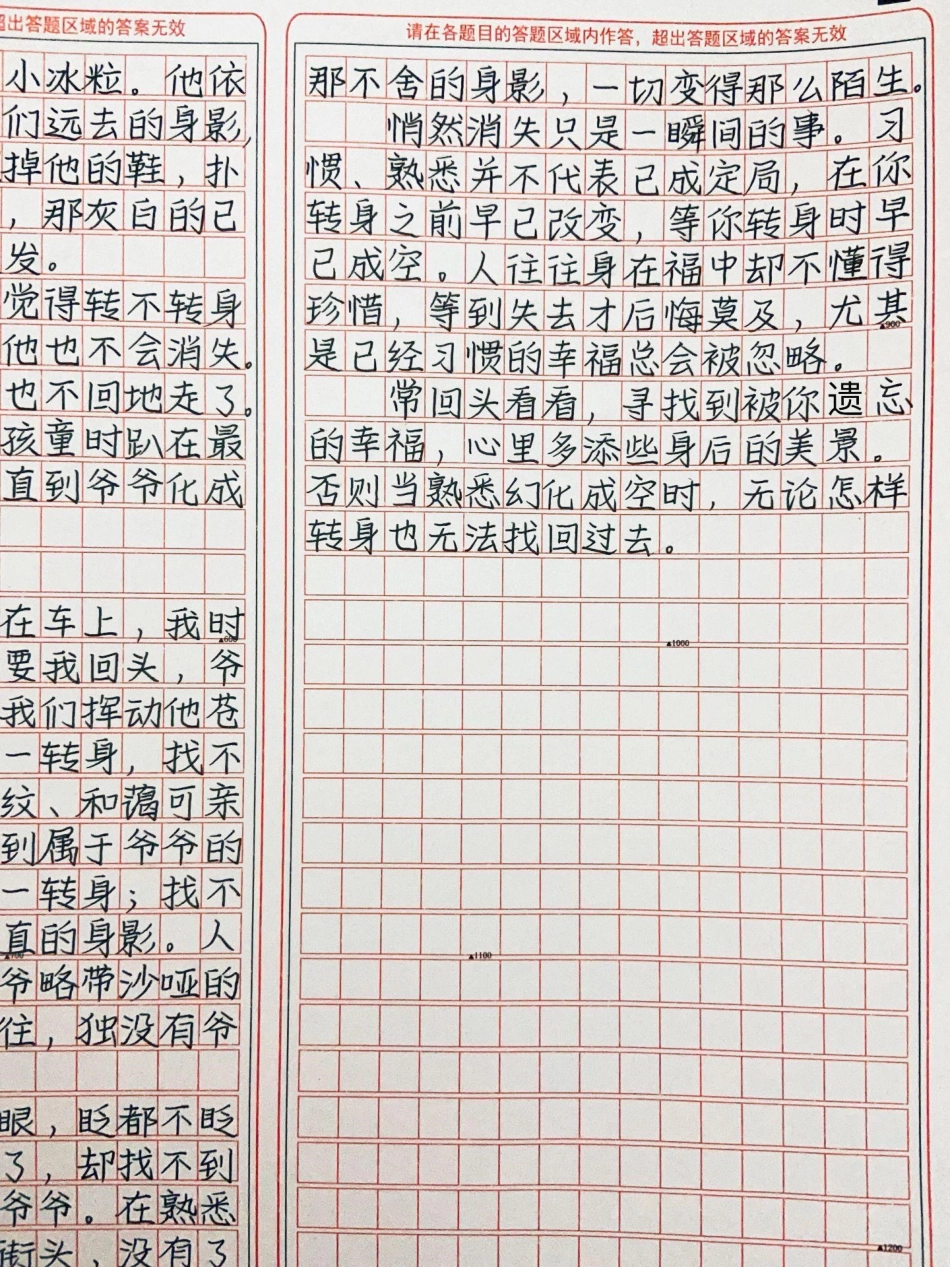 超出答题区域的答案无效
小冰粒。他依
们远去的身影,
掉他的鞋，扑
，那灰白的己
发。
觉得转不转身
他也不会消失。
也不回地走了。
孩童时趴在最
直到爷爷化成
在车上，我时
▲600
要我回头，爷
我们挥动他苍
一转身，找不
纹、和蔼可亲
到属于爷爷的
一转身；找不
直的身影。人
▲700
爷略带沙哑的
往，独没有爷
眼，眨都不眨
了，却找不到
爷爷。在熟悉
街头，没有了
请在各题目的答题区域内作答，超出答题区域的答案无效
那不舍的身影，一切变得那么陌生。
悄然消失只是一瞬间的事。习
惯、熟悉并不代表已成定局，在你
转身之前早已改变，等你转身时早
已成空。人往往身在福中却不懂得
珍惜，等到失去才后悔莫及，尤其
▲900
是已经习惯的幸福总会被忽略。
常回头看看，寻找到被你遗忘
的幸福，心里多添些身后的美景。
否则当熟悉幻化成空时，无论怎样
转身也无法找回过去。
▲1000
▲1100
▲1200